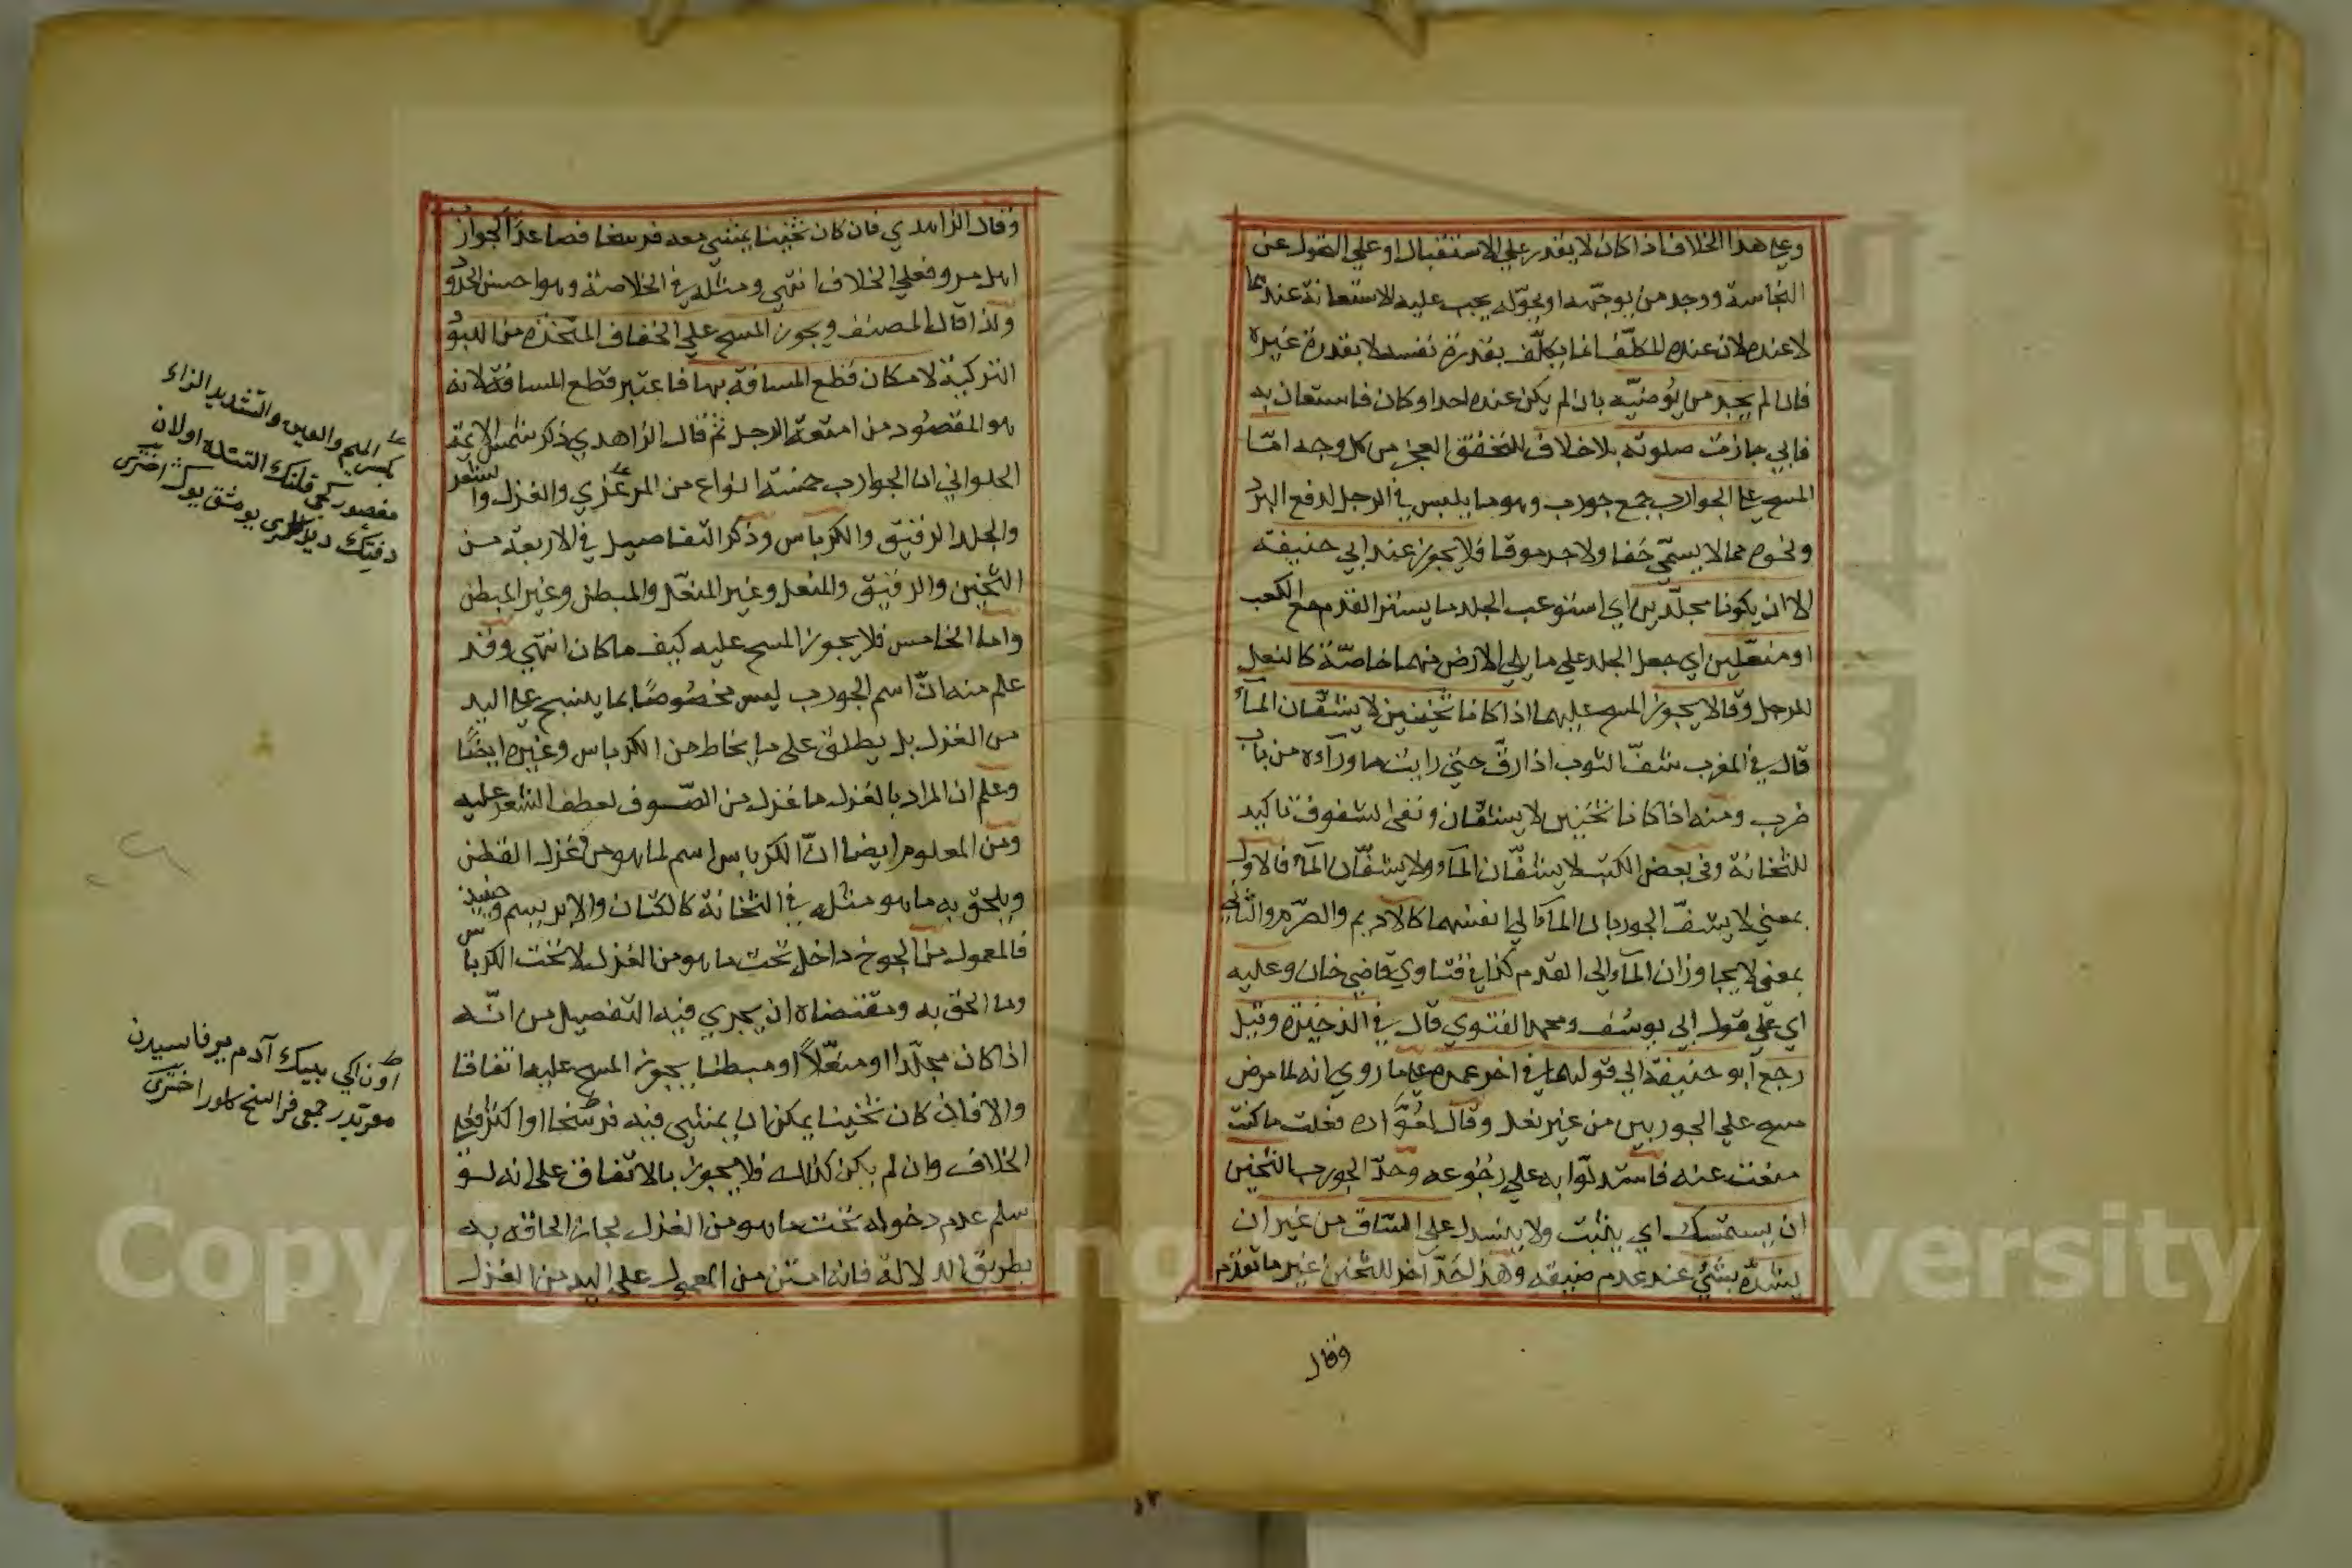 وعلى هذا الخلاف اذا كان لا يقدر علي الاستقبال او علي التحول عن
النجاسة ووجد من يوجّهه او يحوّله يجب عليه الاستعانة عندهما
لا عنده لان عنده المكلّف انما يكلّف بقدرة نفسه لا بقدرة غيره
فان لم يجد من يُوضّيه بان لم يكن عنده احد او كان فاستعان به
فابي جازت صلوته بلا خلاف للتحقق العجز من كل وجه امّا
المسح على الجوارب جمع جورب وهو ما يلبس في الرجل لدفع البرد
ونحوه مما لا يسمّي خفا ولا جرموقا فلا يجوز عند ابي حنيفة
الا ان يكونا مجلّدين اي استوعب الجلد ما يستر القدم مع الكعب
او منعّلين اي جعل الجلد علي ما يلي الارض منهما خاصّة كالنعل
للرجل وقالا يجوز المسح عليهما اذا كانا ثخينين لا يشفّان المآء
قال في المغرب شفّ الثوب اذا رقّ حتي رايت ما ورآءه من باب
ضرب ومنه اذا كانا ثخينين لا يشفّان ونفى الشفوف تاكيد
للثخانة وفى بعض الكتب لا ينشفّان المآء ولا يشفّان المآء فالاول
بمعني لا ينشفّ الجوربان المآء الي انفسهما كالاديم والصّرم والثاني
بمعني لا يجاوزان المآء الى القدم كذا في فتاوي قاضي خان وعليه
اي علي قول ابي يوسُف ومحمد الفتوي قال في الذخيرة وقيل
رجع ابو حنيفة الي قولهما في اخر عمره على ما روي انه لما مرض
مسح علي الجوربين من غير نعل وقال لعُوّاده فعلت ما كنت
منعت عنه فاستدلّوا به علي رُجُوعه وحدّ الجورب الثخين
ان يستمسك اي يثبت ولا ينسدل علي السّاق من غير ان
يشدّه بشئ عند عدم ضيقه وهذا حَدّ آخر للثخين غير ما تقدّم
وقال
وقال الزاهدي فان كان ثخينا يمشي معه فرسخا فصاعدًا كجوارب
اهل مرو فعلي الخلاف انتهي ومثله في الخلاصة وهو احسن الحدود
ولذا قال المصنف ويجوز المسح علي الخفاف المتخذة من اللبود
التركية لامكان قطع المسافة بها فاعتبر قطع المسافة لانه
هو المقصُود من امتعة الرجل ثم قال الزاهدي ذكر شمس الايمة
الحلواني ان الجوارب خمسة انواع من المرعزي والغزل والشعر
والجلد الرقيق والكرباس وذكر التفاصيل في الاربعة من
الثخين والرقيق والمنعل وغير المنعّل والمبطن وغير المبطن
واما الخامس فلا يجوز المسح عليه كيف ما كان انتهي وقد
علم منه انّ اسم الجورب ليس مخصُوصًا بما ينسج على اليد
من الغزل بل يطلق على ما يخاط من الكرباس وغيره ايضًا
وعلم ان المراد بالغزل ما غزل من الصّوف لعطف الشعر عليه
ومن المعلوم ايضا انّ الكرباس اسم لما هو من غزل القطن
ويلحق به ما هو مثله في الثخانة كالكتان والابريسم وحينئذ
فالمعمول من الجوخ داخل تحت ما هو من الغزل لا تحت الكرباس
وما الحق به ومقتضاه ان يجري فيه التفصيل من انّه
اذا كان مجلّدا او منعّلاً او مبطنا يجوز المسح عليه اتفاقا
والا فان كان ثخينا يمكن ان يمشي فيه فرسخا او اكثر فعلي
الخلاف وان لم يكن كذلك فلا يجوز بالاتفاق على انه لو
سلم عدم دخوله تحت ما هو من الغزل لجاز الحاقه به
بطريق الدلالة فانه امتن من المعمول على اليد من الغزل
بكسر الميم والعين والتشديد الزاء
اون ايكي بيك آدم
اختري